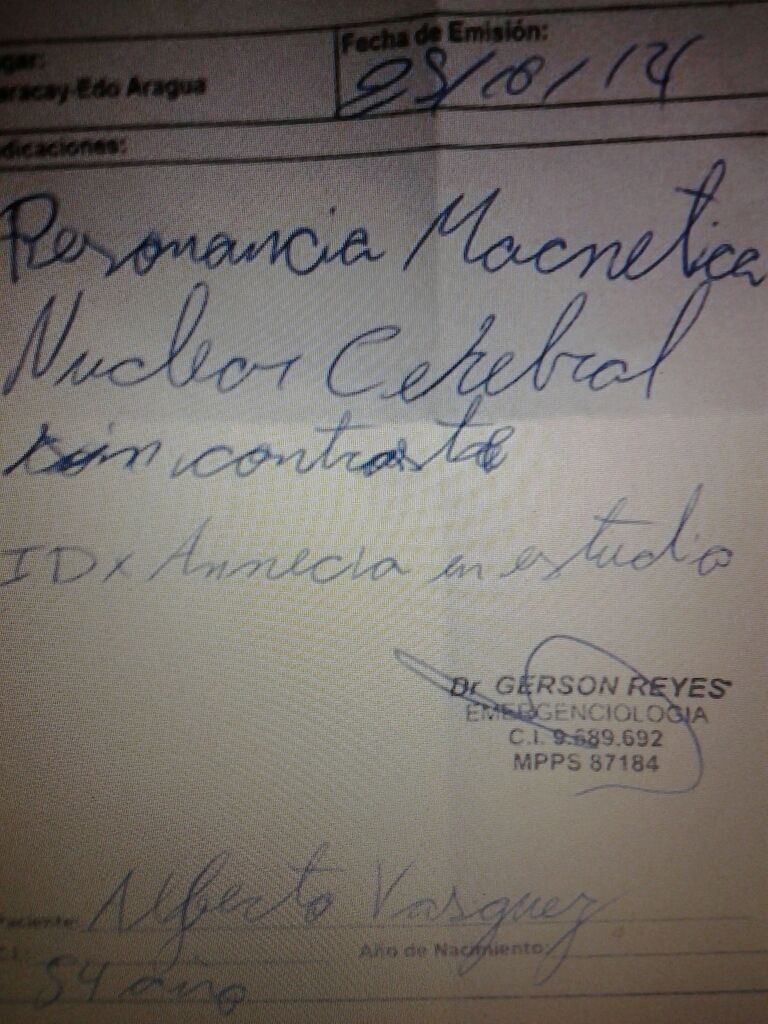 gar:
aracay-Edo Aragua
Fecha de Emisión:
dicaciones:
Resonancia Macnetica
Nuclear Cerebral
contraste
IDx Amnecia en estudio
Dr. GERSON REYES
EMERGENCIOLOGIA
C.I. 9.689.692
MPPS 87184
Paciente: Alberto Vasquez
C.I.: Año de Nacimiento:
54 año